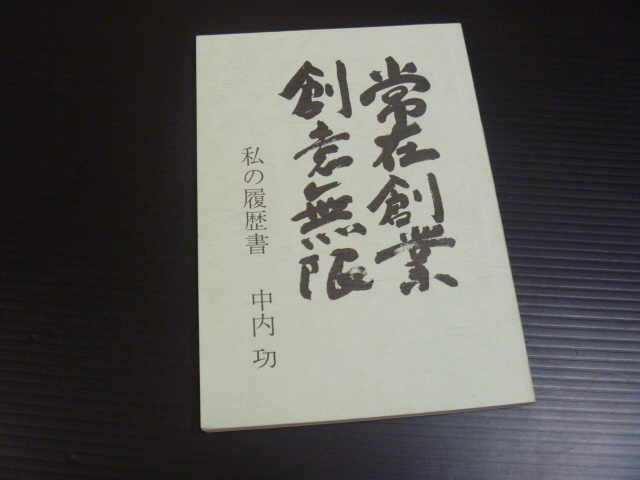 常在創業
創意無限
私の履歴書 中内功